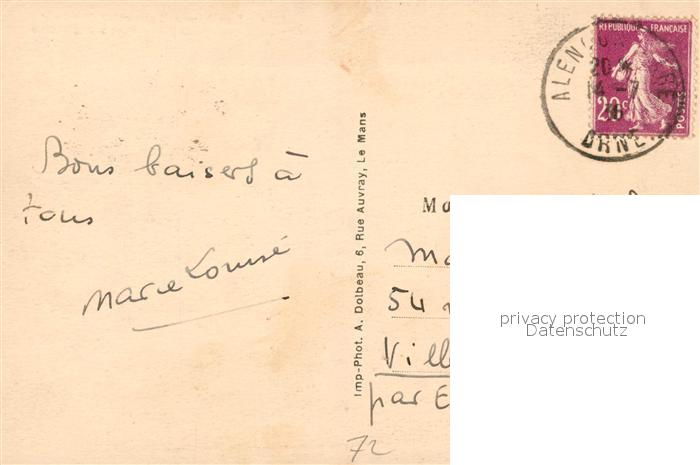 Bons baisers à
tous
Marie Louise
Imp-Phot. A. Dolbeau, 6, Rue Auvray, Le Mans
RÉPUBLIQUE FRANÇAISE
20c
POSTES
ALENÇ
20
14 -7
ORNE
M
Ma
54
Vill
par E
72
privacy protection
Datenschutz